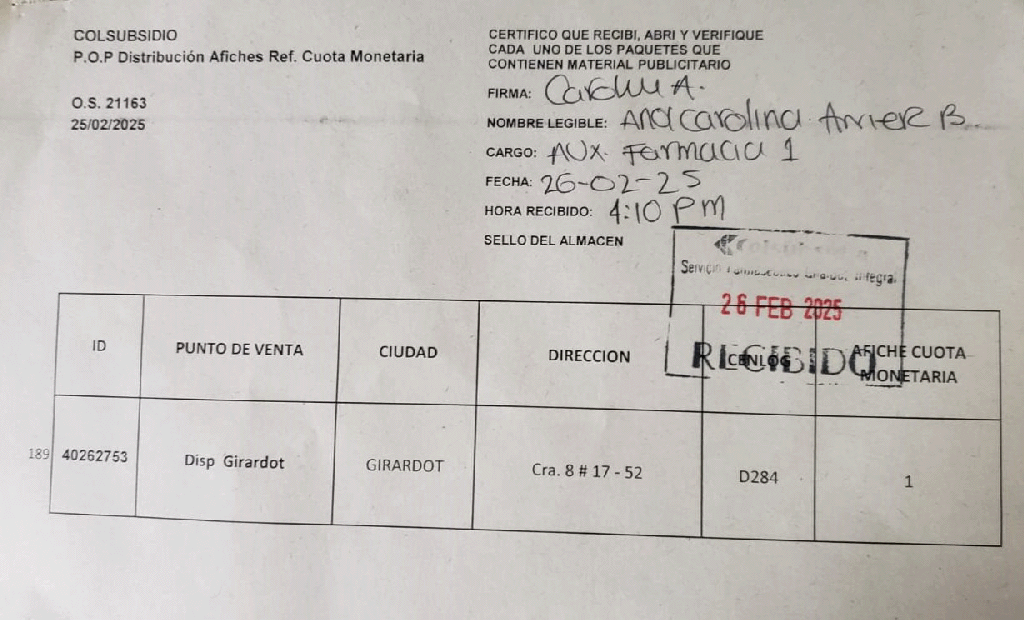 COLSUBSIDIO
P.O.P Distribución Afiches Ref. Cuota Monetaria
O.S. 21163
25/02/2025
CERTIFICO QUE RECIBI, ABRI Y VERIFIQUE
CADA UNO DE LOS PAQUETES QUE
CONTIENEN MATERIAL PUBLICITARIO
FIRMA: A.
NOMBRE LEGIBLE: Ana Carolina B.
CARGO: AUX Farmacia 1
FECHA: 26-02-25
HORA RECIBIDO: 4:10 PM
SELLO DEL ALMACEN
Colsubsidio
Servicio Integral
26 FEB 2025
RECIBIDO
ID PUNTO DE VENTA CIUDAD DIRECCION CENLOG AFICHE CUOTA
MONETARIA
189 40262753 Disp Girardot GIRARDOT Cra. 8 # 17 - 52 D284 1